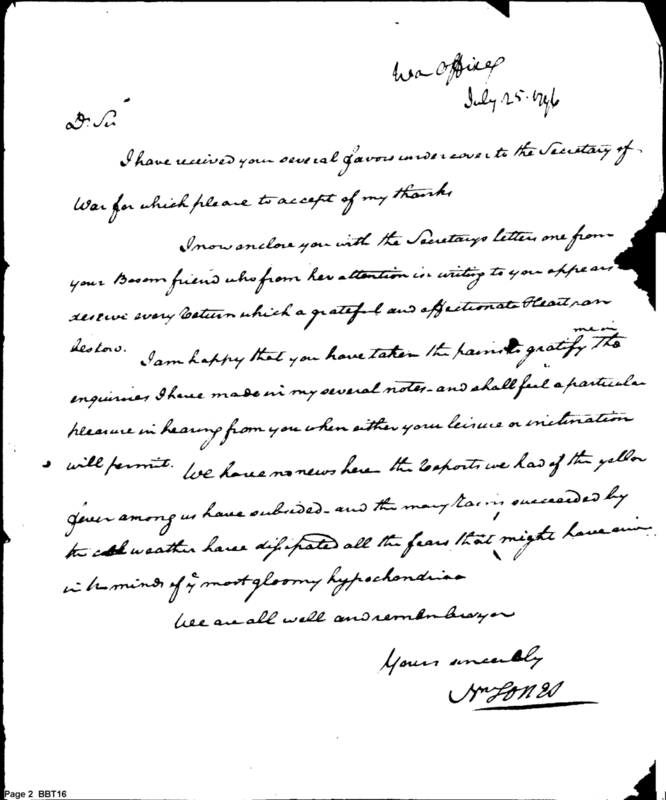 War Office
July 25. 1796
Dr. Sir
I have received your several favors under cover to the Secretary of
War for which please to accept of my thanks
I now enclose you with the Secretarys letters one from
your Bosom friend who from her attention in writing to you appears
deserve every return which a grateful and affectionate Heart can
bestow.
I am happy that you have taken the pains to gratify me in the
enquiries I have made in my several notes - and shall feel a particular
pleasure in hearing from you when either your leisure or inclination
will permit. We have no news here the reports we had of the yellow
fever among us have subsided - and the many rains succeeded by
the cool weather have dissipated all the fears that might have
in the minds of ye most gloomy hypochondriac
We are all well and remember you
Yours sincerely
Wm Jones
Page 2 BBT16